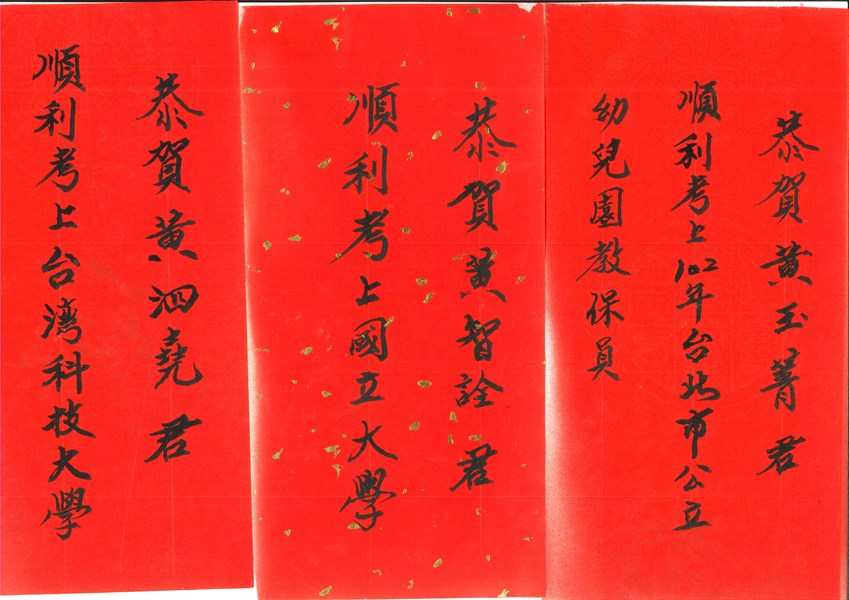 恭賀黄玉菁君
順利考上102年台北市公立
幼兒園教保員
恭賀黄智詮君
順利考上國立大學
恭賀黄泗堯君
順利考上台湾科技大學